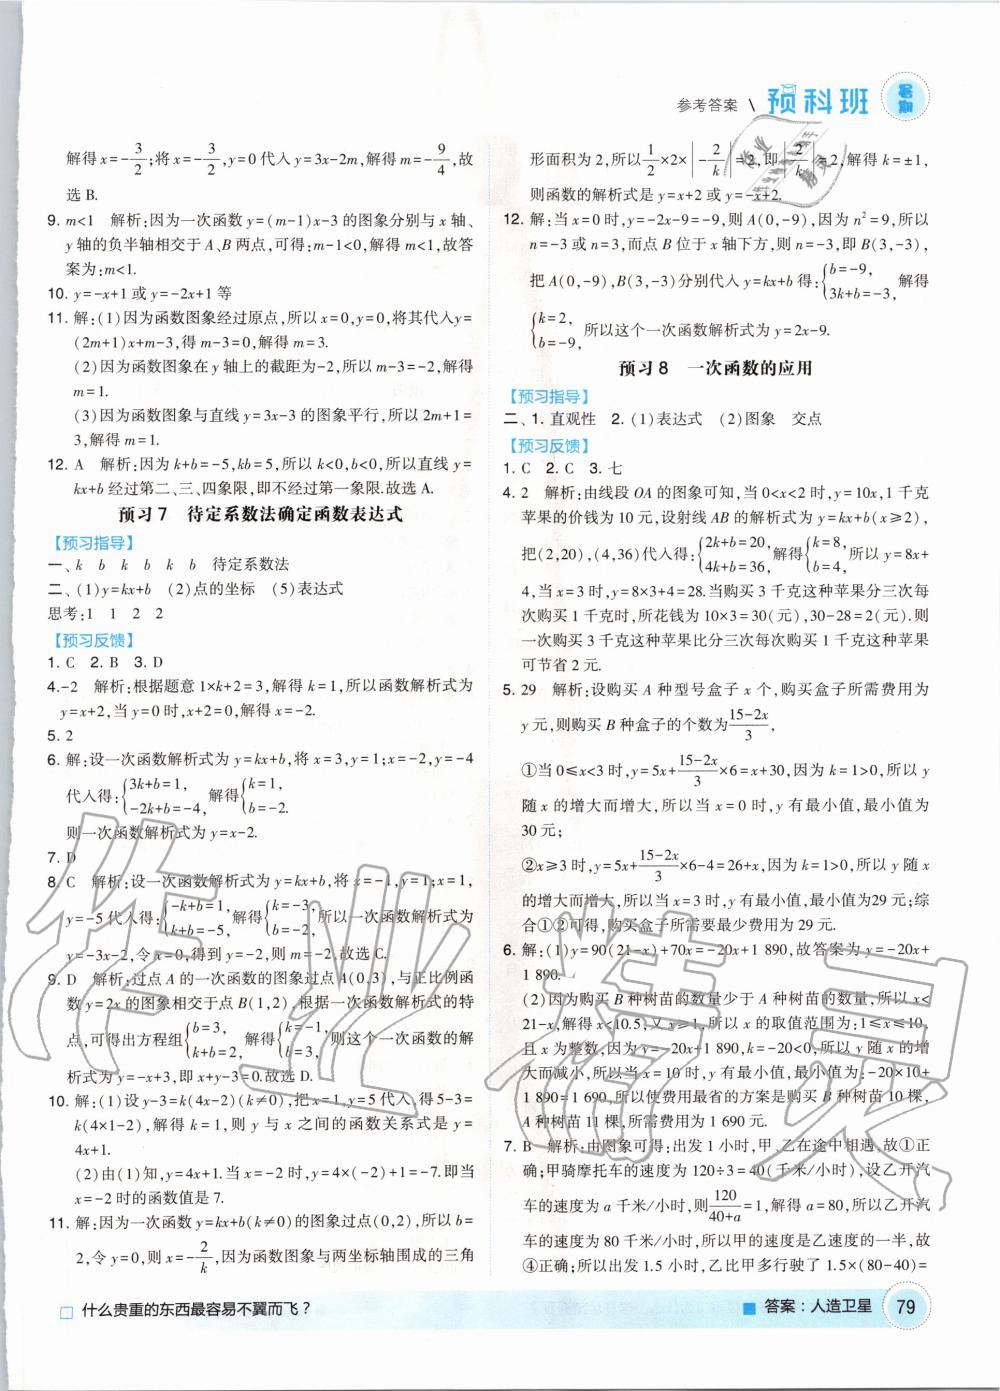 参考答案 \ 预科班 暑期
解得 x=-3/2;将 x=-3/2,y=0代入 y=3x-2m,解得 m=-9/4,故
选 B.
9. m<1 解析:因为一次函数 y=(m-1)x-3 的图象分别与 x 轴、
y 轴的负半轴相交于 A、B 两点,可得:m-1<0,解得 m<1,故答
案为:m<1.
10. y=-x+1 或 y=-2x+1 等
11. 解:(1)因为函数图象经过原点,所以 x=0,y=0,将其代入y=
(2m+1)x+m-3,得 m-3=0,解得 m=3.
(2)因为函数图象在 y 轴上的截距为-2,所以 m-3=-2,解得
m=1.
(3)因为函数图象与直线 y=3x-3 的图象平行,所以 2m+1=
3,解得 m=1.
12. A 解析:因为 k+b=-5,kb=5,所以 k<0,b<0,所以直线 y=
kx+b 经过第二、三、四象限,即不经过第一象限.故选 A.
预习 7 待定系数法确定函数表达式
【预习指导】
一、k b k b k b 待定系数法
二、(1)y=kx+b (2)点的坐标 (5)表达式
思考:1 1 2 2
【预习反馈】
1. C 2. B 3. D
4.-2 解析:根据题意 1×k+2=3,解得 k=1,所以函数解析式为
y=x+2,当 y=0 时,x+2=0,解得 x=-2.
5. 2
6. 解:设一次函数解析式为 y=kx+b,将 x=3,y=1;x=-2,y=-4
代入得:{3k+b=1, -2k+b=-4, 解得{k=1, b=-2.
则一次函数解析式为 y=x-2.
7. D
8. C 解析:设一次函数解析式为 y=kx+b,将 x=-1,y=1;x=1,
y=-5 代入得:{-k+b=1, k+b=-5, 解得:{k=-3, b=-2, 所以一次函数解析式为
y=-3x-2,令 x=0,得到 y=-2,则 m=-2.故选 C.
9. D 解析:过点 A 的一次函数的图象过点 A(0,3),与正比例函
数 y=2x 的图象相交于点 B(1,2),根据一次函数解析式的特
点,可得出方程组{b=3, k+b=2, 解得{k=-1, b=3, 则这个一次函数的解
析式为 y=-x+3,即 x+y-3=0.故选 D.
10. 解:(1)设 y-3=k(4x-2)(k≠0),把 x=1,y=5 代入,得 5-3=
k(4×1-2),解得 k=1,则 y 与 x 之间的函数关系式是 y=
4x+1.
(2)由(1)知,y=4x+1.当 x=-2 时,y=4×(-2)+1=-7.即当
x=-2 时的函数值是 7.
11. 解:因为一次函数 y=kx+b(k≠0)的图象过点(0,2),所以 b=
2,令 y=0,则 x=-2/k,因为函数图象与两坐标轴围成的三角
形面积为 2,所以1/2×2×|-2/k|=2,即|2/k|=2,解得 k=±1,
则函数的解析式是 y=x+2 或 y=-x+2.
12. 解:当 x=0 时,y=-2x-9=-9,则 A(0,-9),因为 n²=9,所以
n=-3 或 n=3,而点 B 位于 x 轴下方,则 n=-3,即 B(3,-3),
把 A(0,-9),B(3,-3)分别代入 y=kx+b 得:{b=-9, 3k+b=-3, 解得
{k=2, b=-9, 所以这个一次函数解析式为 y=2x-9.
预习 8 一次函数的应用
【预习指导】
二、1. 直观性 2. (1)表达式 (2)图象 交点
【预习反馈】
1. C 2. C 3. 七
4. 2 解析:由线段 OA 的图象可知,当 0<x<2 时,y=10x,1 千克
苹果的价钱为 10 元,设射线 AB 的解析式为 y=kx+b(x≥2),
把(2,20),(4,36)代入得:{2k+b=20, 4k+b=36, 解得{k=8, b=4, 所以 y=8x+
4,当 x=3 时,y=8×3+4=28.当购买 3 千克这种苹果分三次每
次购买 1 千克时,所花钱为 10×3=30(元),30-28=2(元).则
一次购买 3 千克这种苹果比分三次每次购买 1 千克这种苹果
可节省 2 元.
5. 29 解析:设购买 A 种型号盒子 x 个,购买盒子所需费用为
y 元,则购买 B 种盒子的个数为(15-2x)/3,
①当 0≤x<3 时,y=5x+(15-2x)/3×6=x+30,因为 k=1>0,所以 y
随 x 的增大而增大,所以当 x=0 时,y 有最小值,最小值为
30 元;
②x≥3 时,y=5x+(15-2x)/3×6-4=26+x,因为 k=1>0,所以 y 随
x 的增大而增大,所以当 x=3 时,y 有最小值,最小值为29 元;综
合①②可得,购买盒子所需要最少费用为 29 元.
6. 解:(1)y=90(21-x)+70x=-20x+1 890,故答案为 y=-20x+
1 890.
(2)因为购买 B 种树苗的数量少于 A 种树苗的数量,所以 x<
21-x,解得 x<10.5,又 x≥1,所以 x 的取值范围为:1≤x≤10,
且 x 为整数,因为 y=-20x+1 890,k=-20<0,所以 y 随 x 的增
大而减小,所以当 x=10 时,y 有最小值,最小值为-20×10+
1 890=1 690,所以使费用最省的方案是购买 B 种树苗 10 棵,
A 种树苗 11 棵,所需费用为 1 690 元.
7. B 解析:由图象可得:出发 1 小时,甲、乙在途中相遇,故①正
确;甲骑摩托车的速度为 120÷3=40(千米/小时),设乙开汽
车的速度为 a 千米/小时,则120/(40+a)=1,解得 a=80,所以乙开汽
车的速度为 80 千米/小时,所以甲的速度是乙速度的一半,故
④正确;所以出发 1.5 小时,乙比甲多行驶了 1.5×(80-40)=
什么贵重的东西最容易不翼而飞?
答案:人造卫星 79
作业精灵